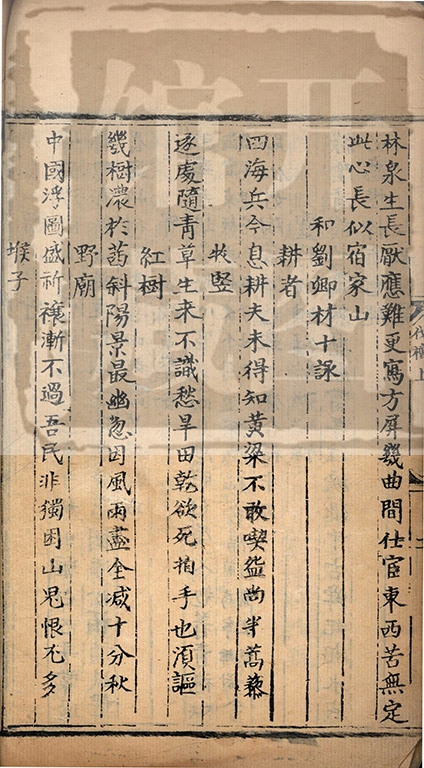 林泉生長厭應難更寫方屏幾曲間仕宦東西苦無定
此心長似宿家山
和劉卿材十詠
耕者
四海兵今息耕夫未得知黃粱不敢喫盤面半蒿藜
牧豎
逐處隨青草生來不識愁旱田乾欲死拍手也須謳
紅樹
幾樹濃於茜斜陽景最幽忽因風雨盡全減十分秋
野廟
中國浮圖盛祈禳漸不過吾民非獨困山鬼恨尤多
堠子